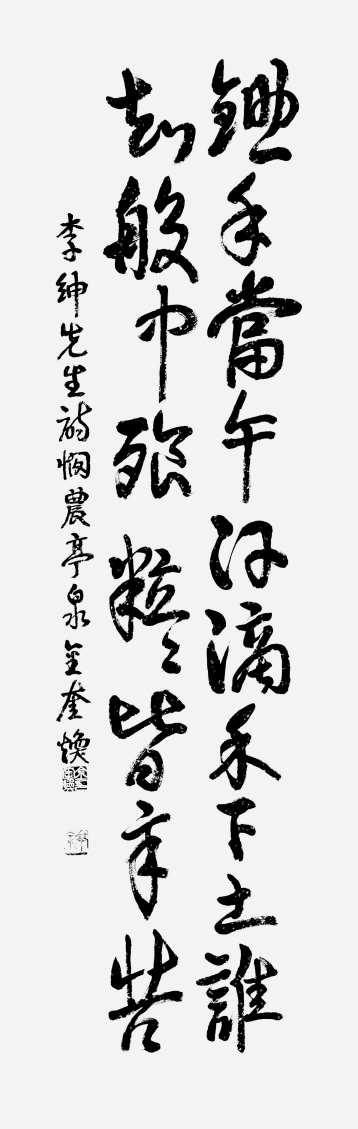 鋤禾當午汗滴禾下土誰
知般中飱粒々皆辛苦
李紳先生詩憫農亭泉金奎煥